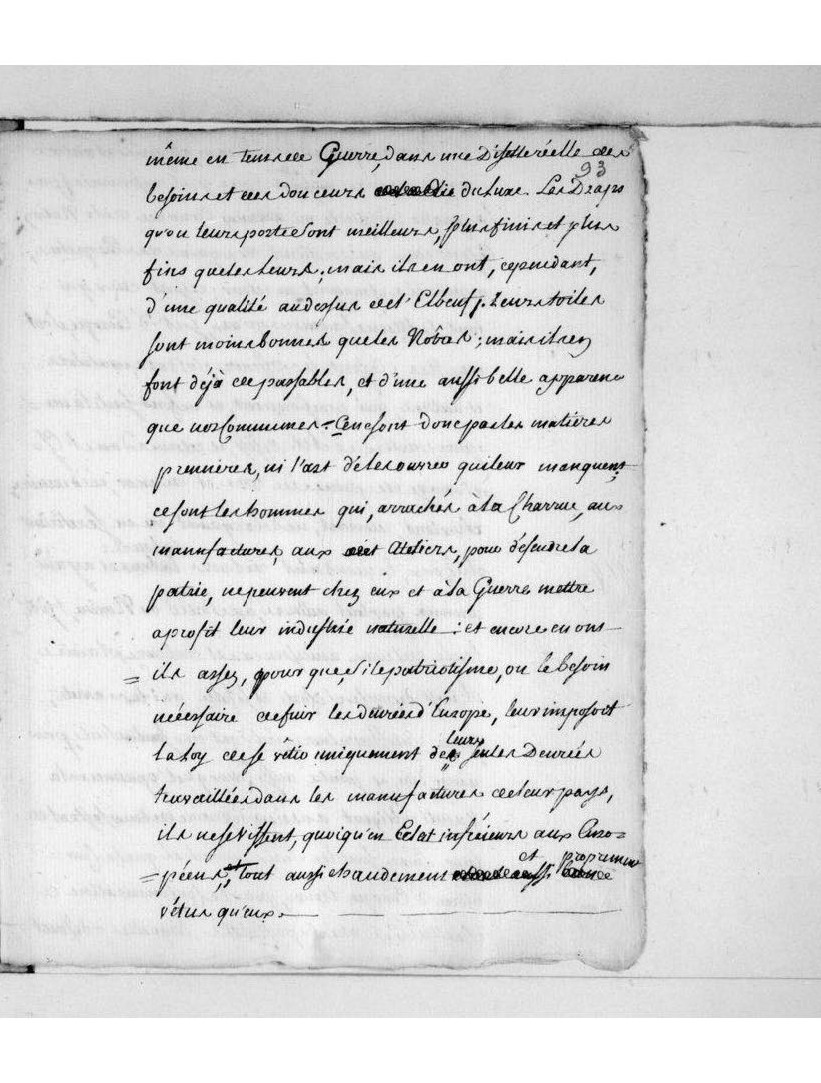 même en tems de Guerre, dans une Disette réelle des
93
besoins et des douceurs du Luxe. Les Draps
qu'on leurs porte sont meilleurs, plus finis et plus
fins que les leurs; mais ils en ont, cependant,
d'une qualité au dessus de l'Elbeuf. Leurs toiles
sont moins bonnes que les Nôtres; mais ils en
font déjà de passables, et d'une aussi belle apparence
que nos Communes. Ce ne sont donc pas les matières
premières, ni l'art de les ouvrer qui leur manquent;
ce sont les hommes qui, arrachés à la Charrue, aux
manufactures, aux Ateliers, pour défendre la
patrie, ne peuvent chez eux et à la Guerre mettre
a profit leur industrie naturelle: et encore en ont-
ils assez, pour que, si le patriotisme, ou le besoin
nécessaire de fuir les denrées d'Europe, leur imposoit
la Loy de se vêtir uniquement de leurs seules Denrées
travaillées dans les manufactures de leur pays,
ils ne se vissent, quoiqu'en Eclat inférieurs aux Euro=
=péens, tout aussi chaudement et proprement
vêtus qu'eux.